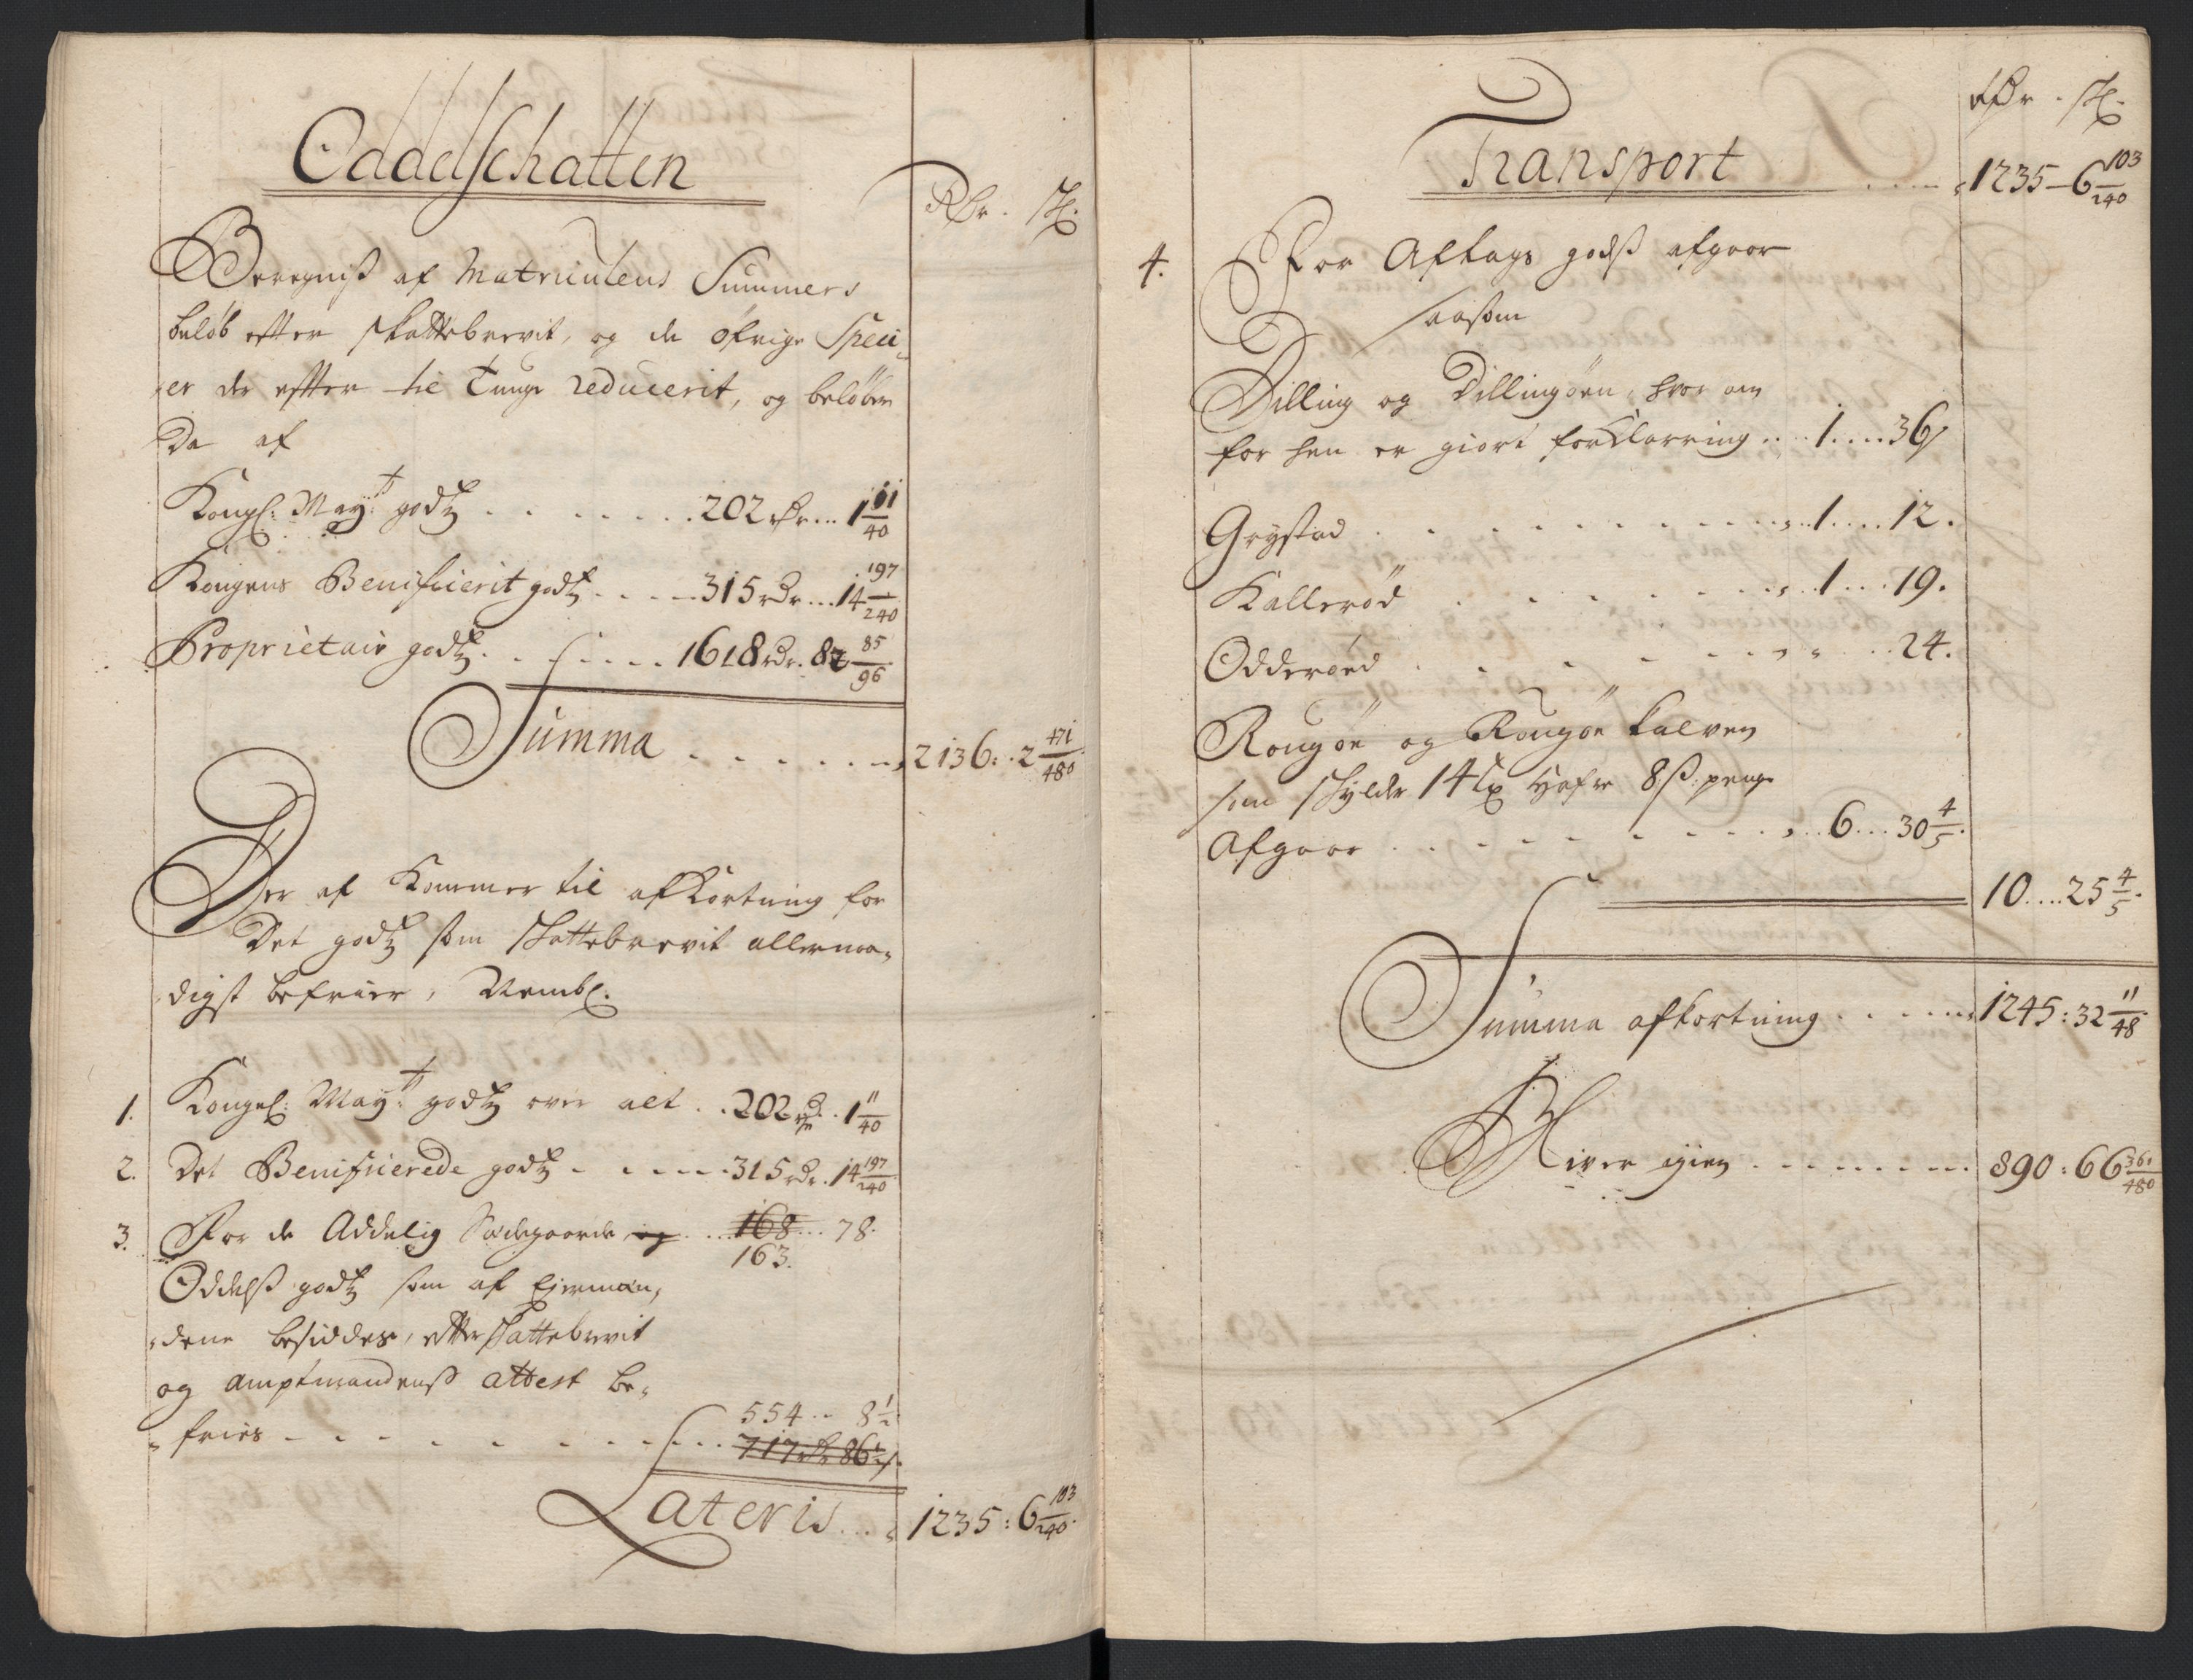 Oddelschatten
Rdr. ß.
Beregniß af Matriculens Summers
beløb efter skattebrevit, og de øfrige Speci,
,,er der efter til Tunge reducerit, og beløber
Da af
Kongl: Mayts: godtz . . . . . . . 202 rdr... 1 11/40
Kongens Benificierit godtz . . . . 315 rdr... 14 197/240
Proprietair godtz . . . . . 1618 rdr. 82 85/96
Summa . . . . . . . 2136: . 2 471/480
Der af Kommer til afkortning for
Det godtz som skattebrevit allernaa,
,,digst befrier, Nembl.
1. Kongel: Mayts: godtz over alt . . 202 rdr . 1 11/40
2. Det Benificierede godtz - . . . . 315 rdr. 14 197/240
3. For de Addelig Sædegaarde og . . . 168 ... 78.
163.
Oddelß godtz som af Eiermæn,
,,dene besiddes, efter skattebrevit
og amptmandenß attest be,
554 .. 8 1/2
,,fries - . . . . . . . . . 717 rdr 86 1/2 ß.
Lateris . . . 1235: 6 103/240.
rdr . ß.
Transport . . . . 1235 - 6 103/240
4. For Aftags godß afgaar
saasom
Dilling og Dillingøen, hvor om
for hen er giort forklarring . . . 1 . . . . 36 ß
Grystad . . . . . . . . . . . 1 . . . . 12.
Kallerød . . . . . . . . . 1 . . . 19.
Odderøed . . . . . . . . " . . . 24.
Rougøe og Rougøe Kalven
som skylder 14 Tx Hafre 8 ß penge
Afgaar . . . . . . . . . . . 6 . . . 30 4/5.
10 . . . . 25 4/5.
Summa afkortning . . . . . . 1245: 32 11/48
Bliver igien . . . . . . . . 890: 66 361/480